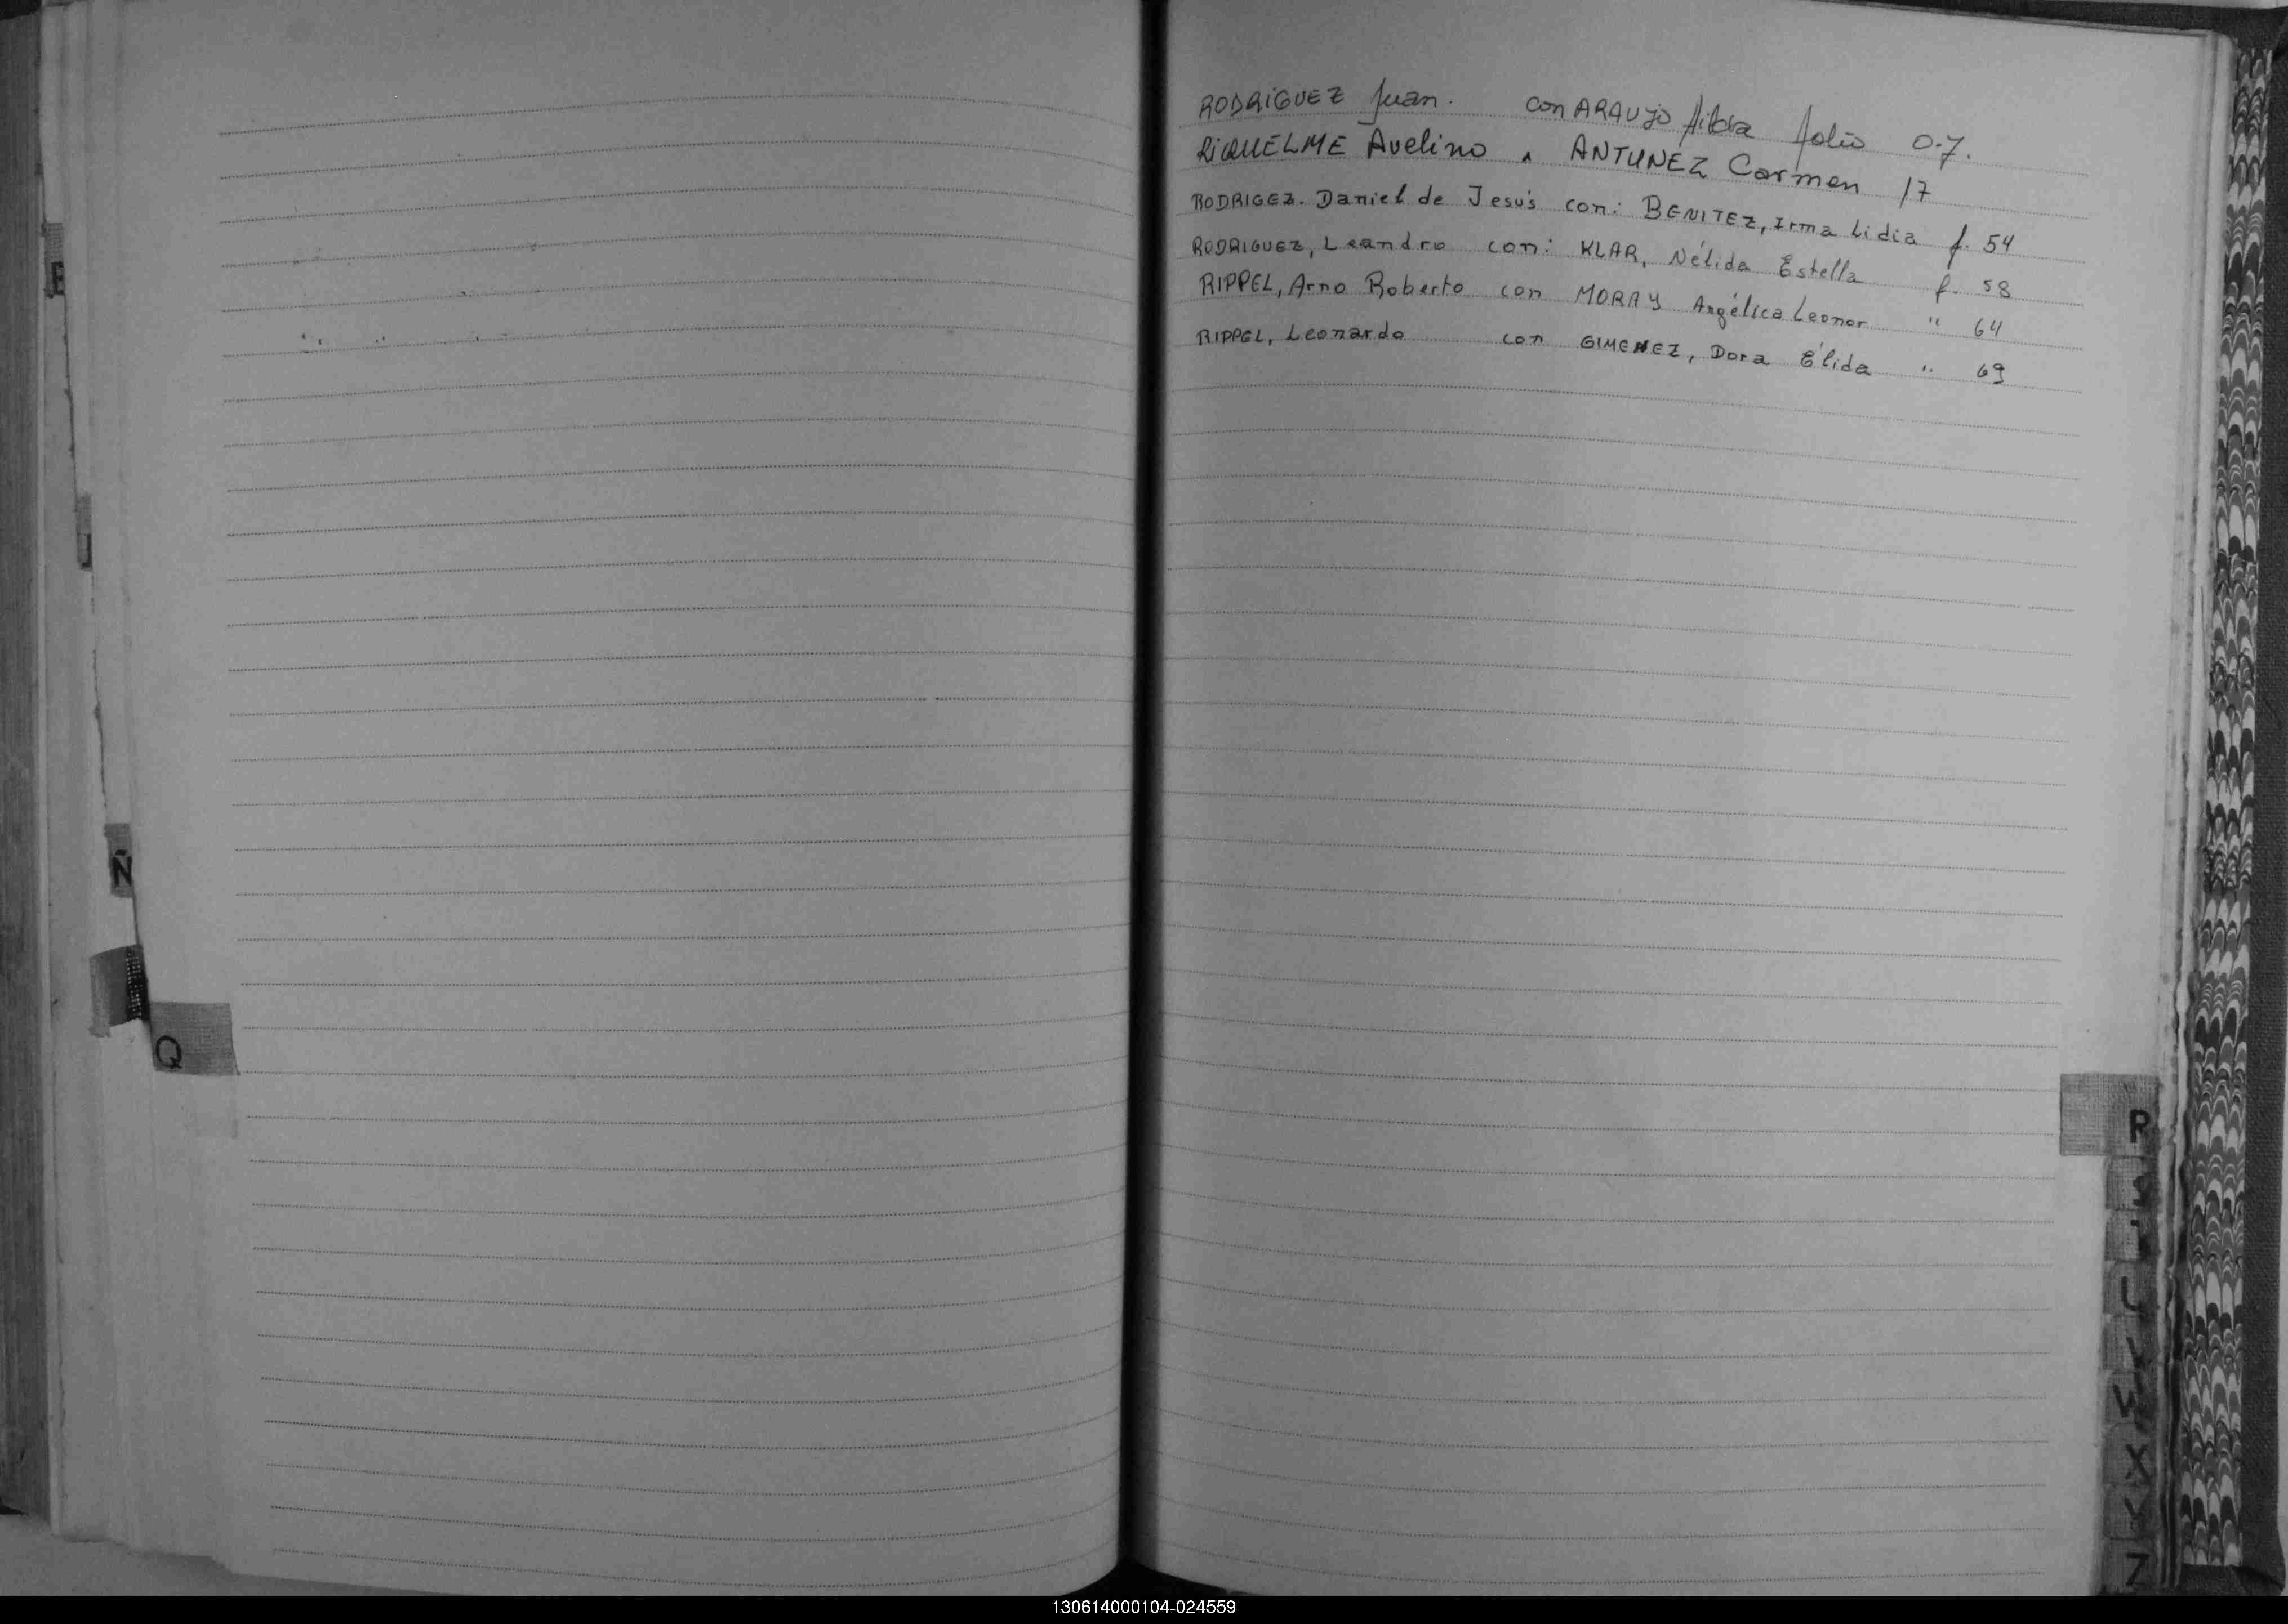 RODRIGUEZ Juan. con ARAUJO Hilda folio 07.
RIQUELME Avelino " ANTUNEZ Carmen 17
RODRIGEZ. Daniel de Jesús con: BENITEZ, Irma Lidia f. 54
RODRIGUEZ, Leandro con: KLAR, Nélida Estella f. 58
RIPPEL, Arno Roberto con MORAY Angélica Leonor " 64
RIPPEL, Leonardo con GIMENEZ, Dora Élida " 69
E
J
Ñ
Q
R
S
T
U
V
W
X
Y
Z
130614000104-024559